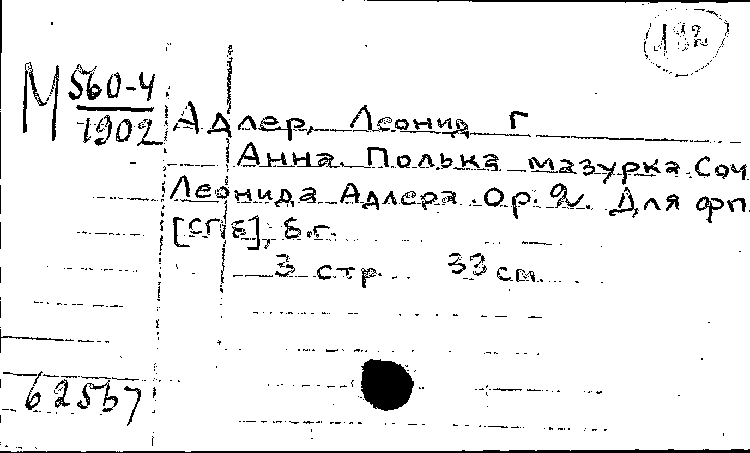 192
М 560-4
1902
Адлер, Леонид Г
Анна. Полька мазурка. Соч
Леонида Адлера. Ор. 2. Для фп
[СПБ], б.г.
3 стр. 33 см.
62567